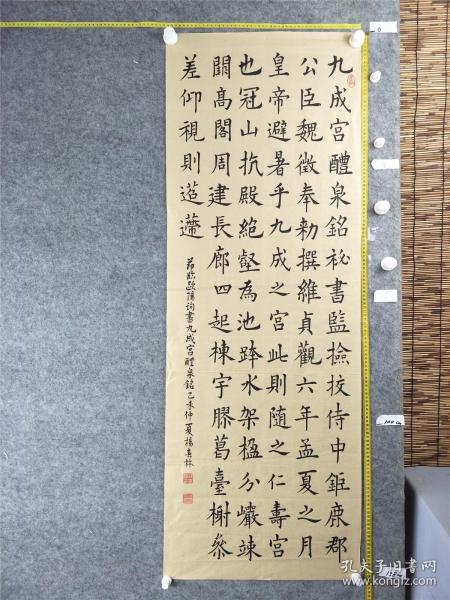 九成宮醴泉銘祕書監撿挍侍中鉅鹿郡
公臣魏徵奉勑撰維貞觀六年孟夏之月
皇帝避暑乎九成之宮此則随之仁壽宮
也冠山抗殿絕壑為池跨水架楹分巖竦
闕高閣周建長廊四起棟宇膠葛臺榭參
差仰視則迢遰
節臨歐陽詢書九成宮醴泉銘乙未仲夏楊春林
孔夫子旧书网
kongfz.com